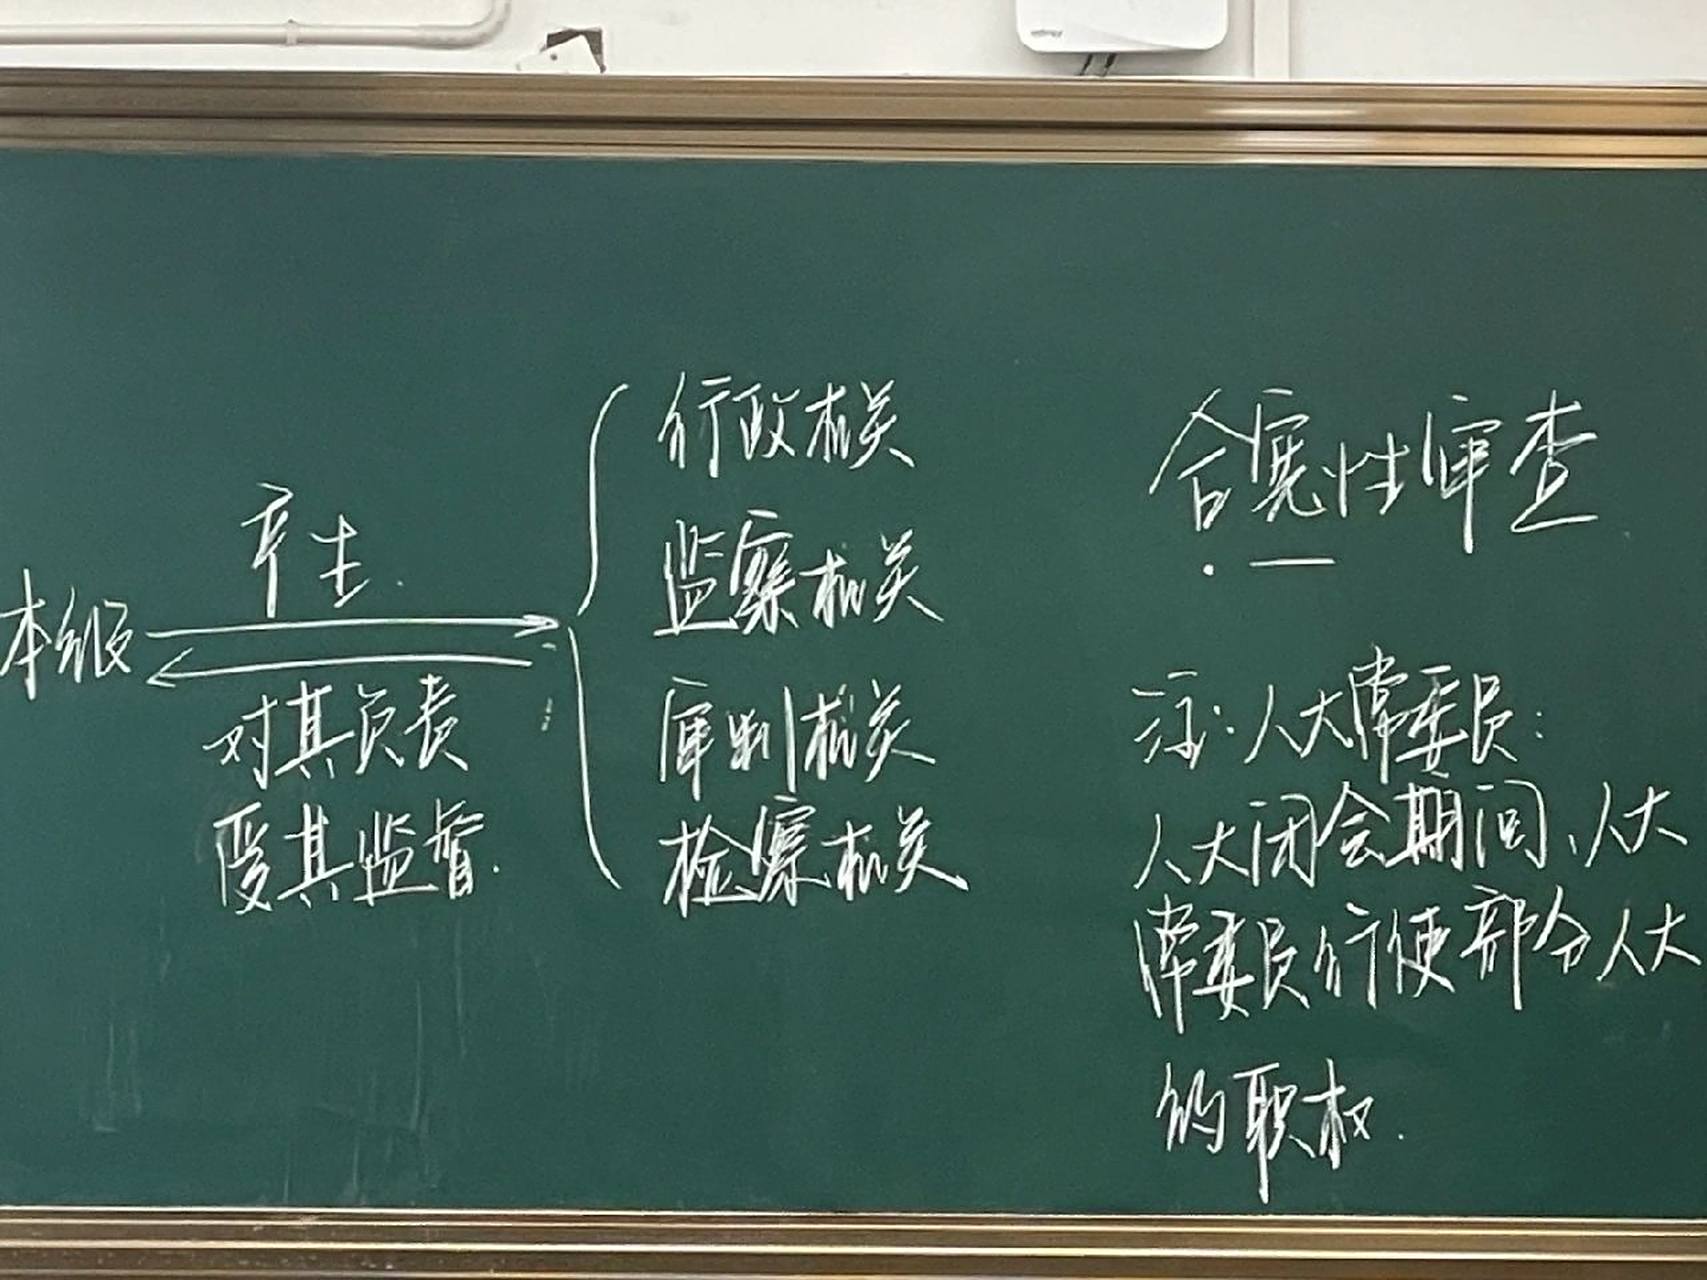 产生.
本级
对其负责
受其监督.
行政机关
监察机关
审判机关
检察机关
合宪性审查
注:人大常委员:
人大闭会期间、人大
常委员行使部分人大
的职权.